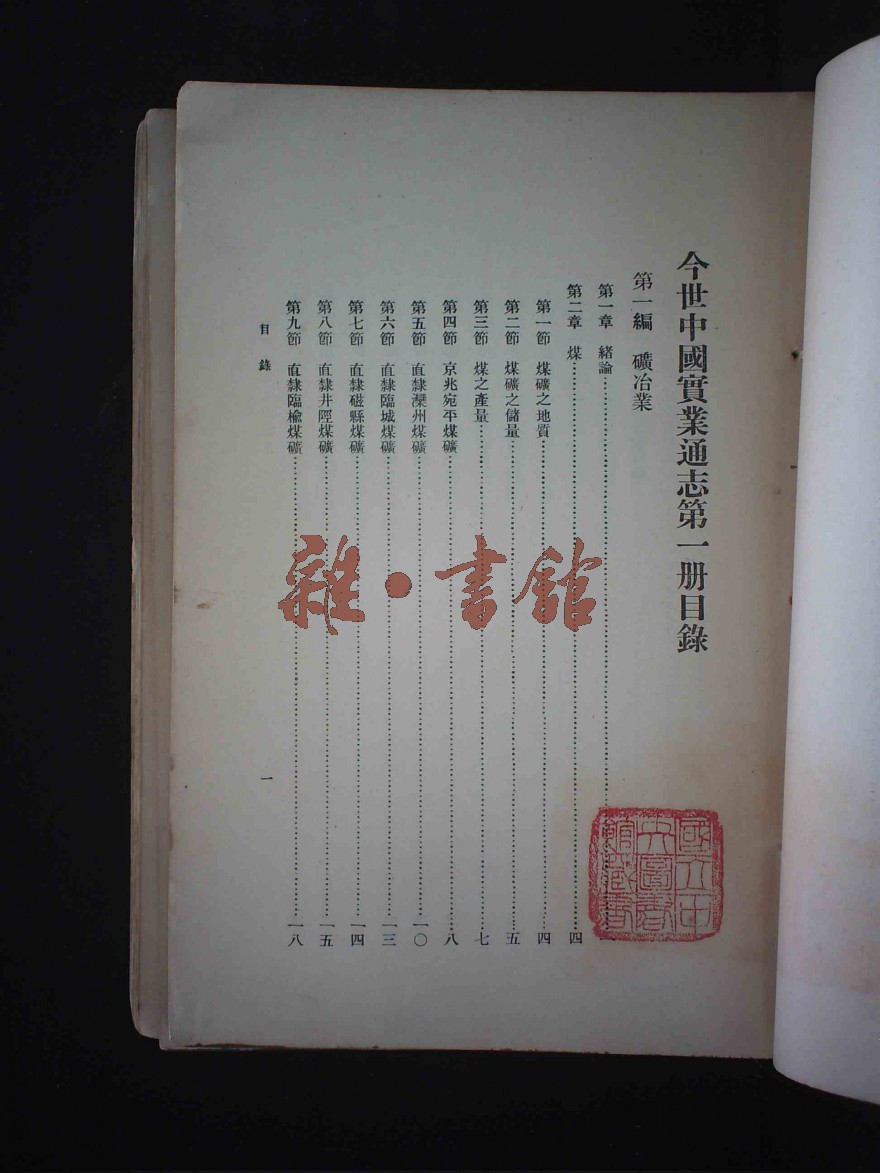 今世中國實業通志第一册目錄
第一編 礦冶業
第一章 緒論……一
第二章 煤……四
第一節 煤礦之地質……四
第二節 煤礦之儲量……五
第三節 煤之產量……七
第四節 京兆宛平煤礦……八
第五節 直隸灤州煤礦……一〇
第六節 直隸臨城煤礦……一三
第七節 直隸磁縣煤礦……一四
第八節 直隸井陘煤礦……一五
第九節 直隸臨榆煤礦……一八
目錄
一
雜·書館
國立中
央圖書
館藏書